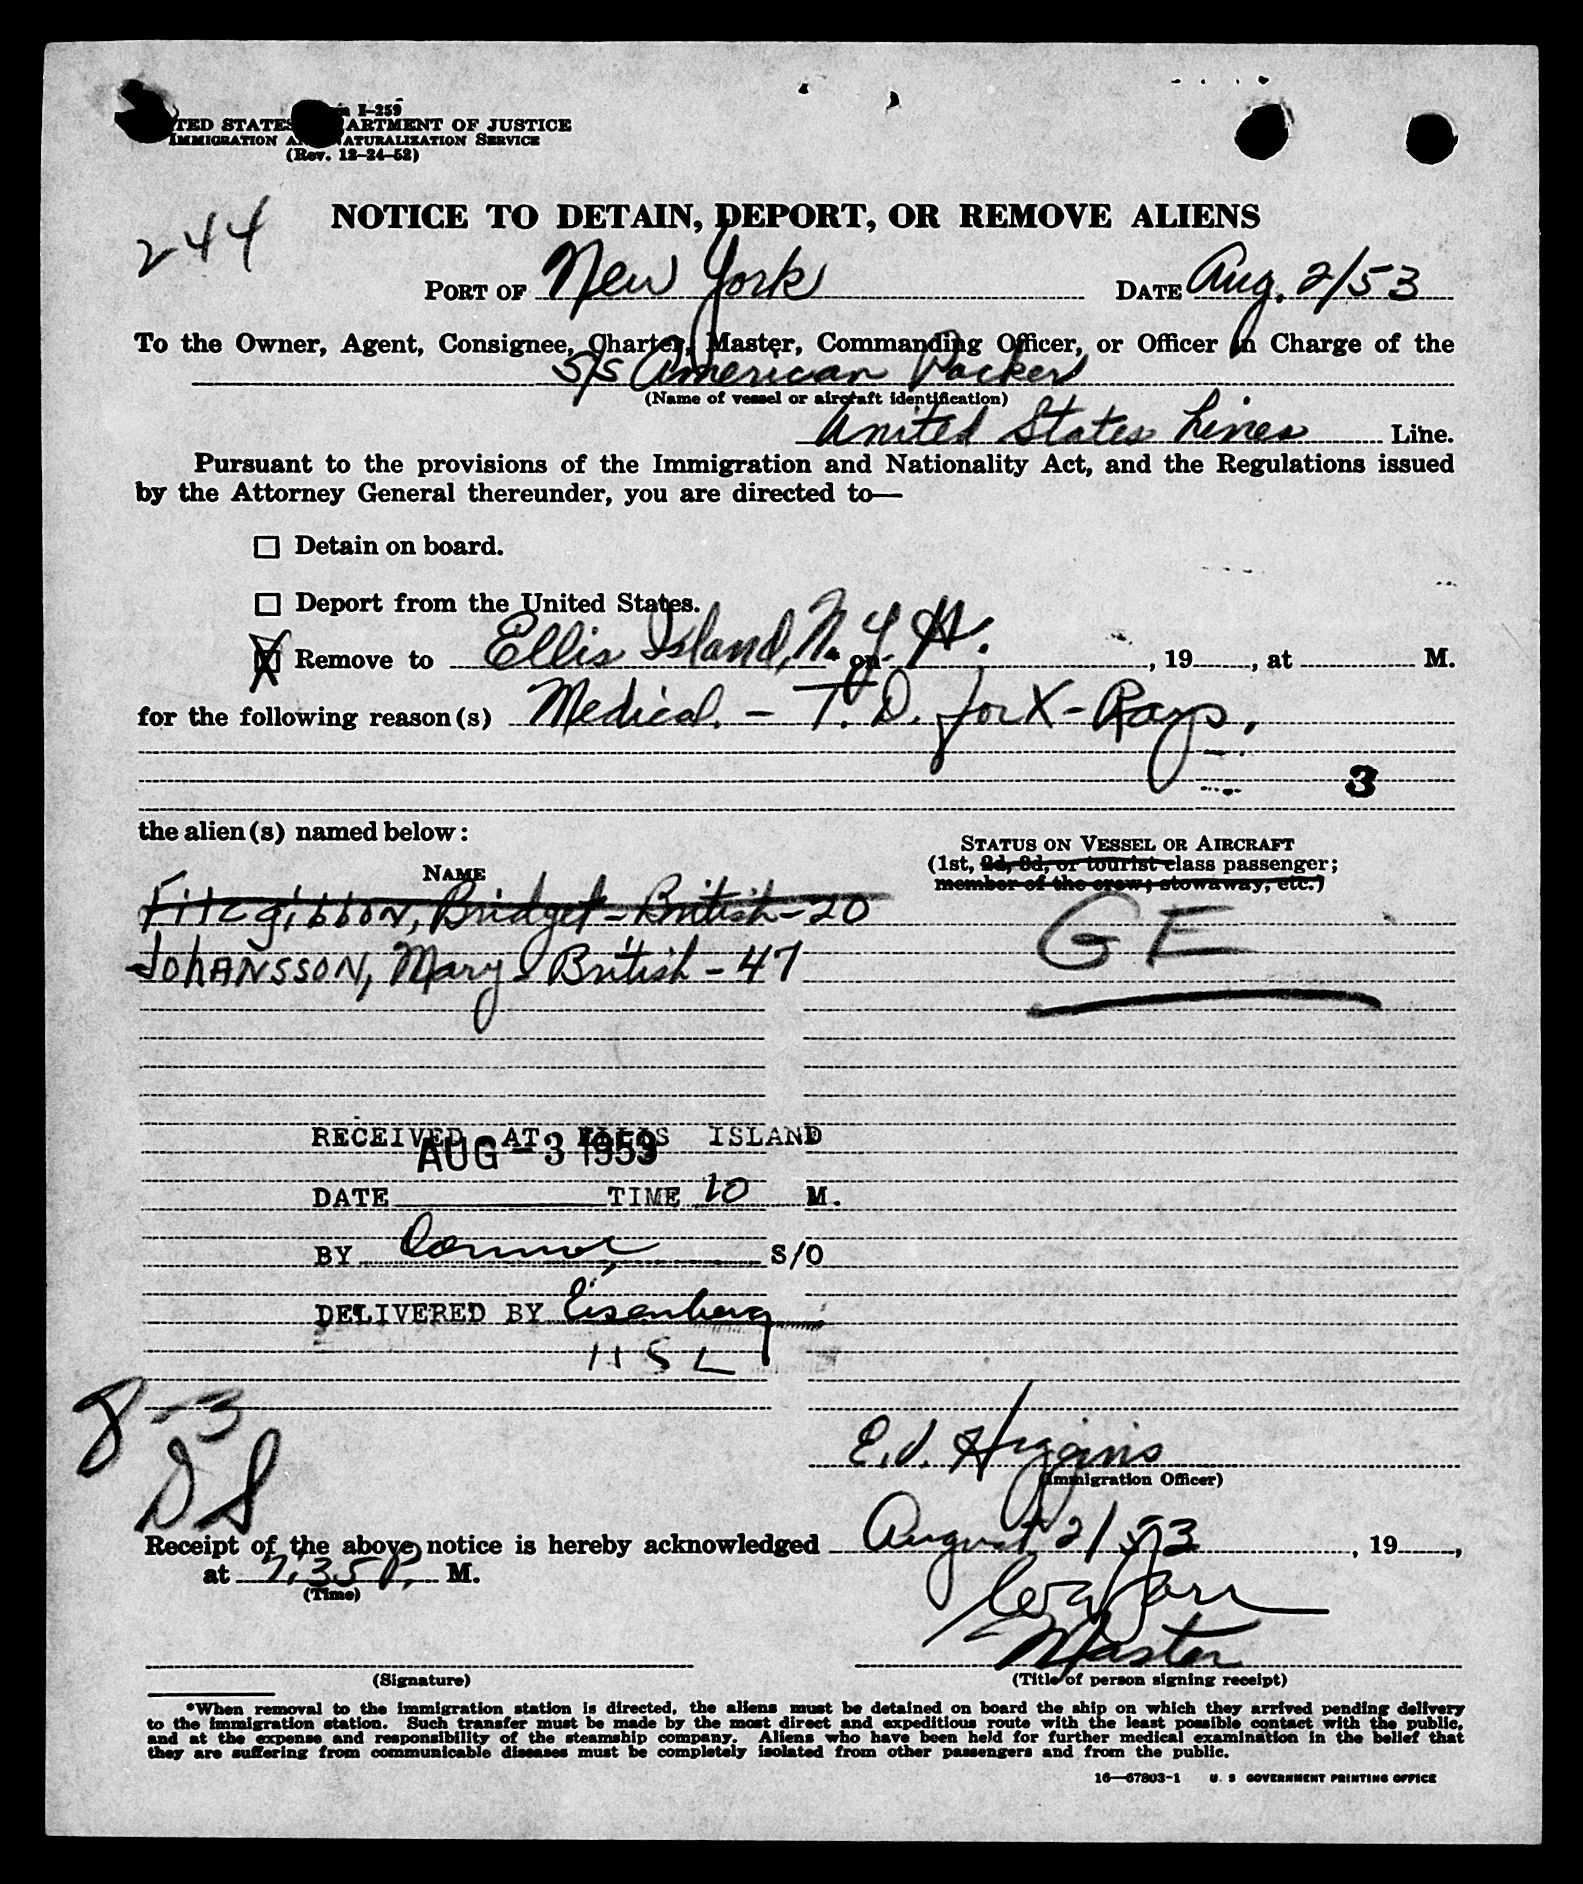 I-259
TED STATES ARTMENT OF JUSTICE
IMMIGRATION A ATURALIZATION SERVICE
(Rev. 12-24-52)
244
NOTICE TO DETAIN, DEPORT, OR REMOVE ALIENS
PORT OF New York DATE Aug. 2/53
To the Owner, Agent, Consignee, Charter, Master, Commanding Officer, or Officer in Charge of the
S/S American Packer
(Name of vessel or aircraft identification)
United States Lines Line.
Pursuant to the provisions of the Immigration and Nationality Act, and the Regulations issued
by the Attorney General thereunder, you are directed to—
Detain on board.
Deport from the United States.
X Remove to Ellis Island, N.Y. H. * on , 19 , at M.
for the following reason(s) Medical. - T.D. for X-Rays.
3
the alien(s) named below:
STATUS ON VESSEL OR AIRCRAFT
(1st, 2d, 3d, or tourist class passenger;
member of the crew; stowaway, etc.)
NAME
Fitzgibbon, Bridget - British - 20
Johansson, Mary - British - 47
GE
RECEIVED AT ELLIS ISLAND
AUG - 3 1953
DATE TIME 10 M.
BY Connor S/O
DELIVERED BY Eisenberg
8-3
DS
E.J. Higgins
(Immigration Officer)
Receipt of the above notice is hereby acknowledged August 2/53 , 19 ,
at 7:35 P. M.
(Time)
Master
(Signature)
(Title of person signing receipt)
*When removal to the immigration station is directed, the aliens must be detained on board the ship on which they arrived pending delivery
to the immigration station. Such transfer must be made by the most direct and expeditious route with the least possible contact with the public,
and at the expense and responsibility of the steamship company. Aliens who have been held for further medical examination in the belief that
they are suffering from communicable diseases must be completely isolated from other passengers and from the public.
16—67803-1 U. S GOVERNMENT PRINTING OFFICE